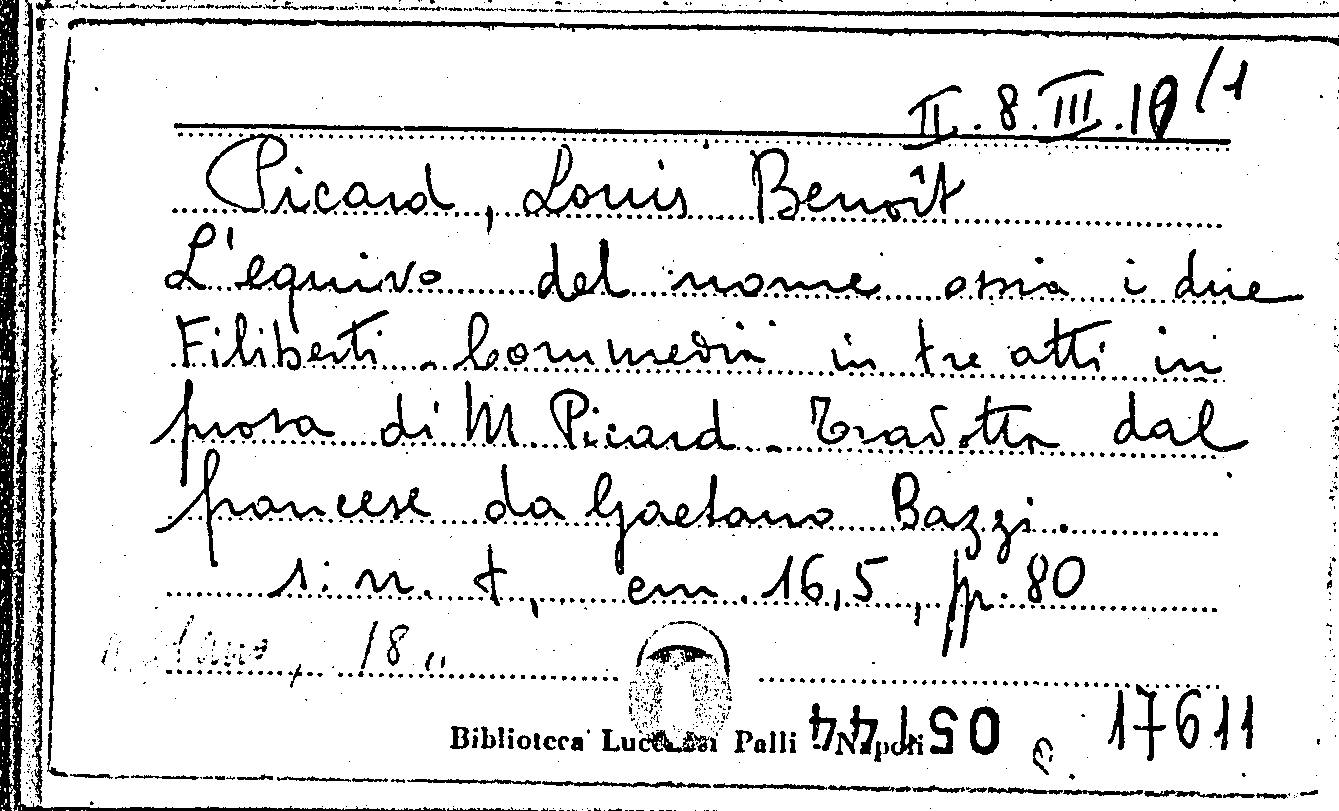 II.8.III.19/1
Picard, Louis Benoît
L'equivo del nome ossia i due
Filiberti. Commedia in tre atti in
prosa di M. Picard. Tradotta dal
francese da Gaetano Bazzi.
s. n. t, cm. 16,5, pp. 80
Milano, 18..
Biblioteca Lucchesi Palli Napoli
17611